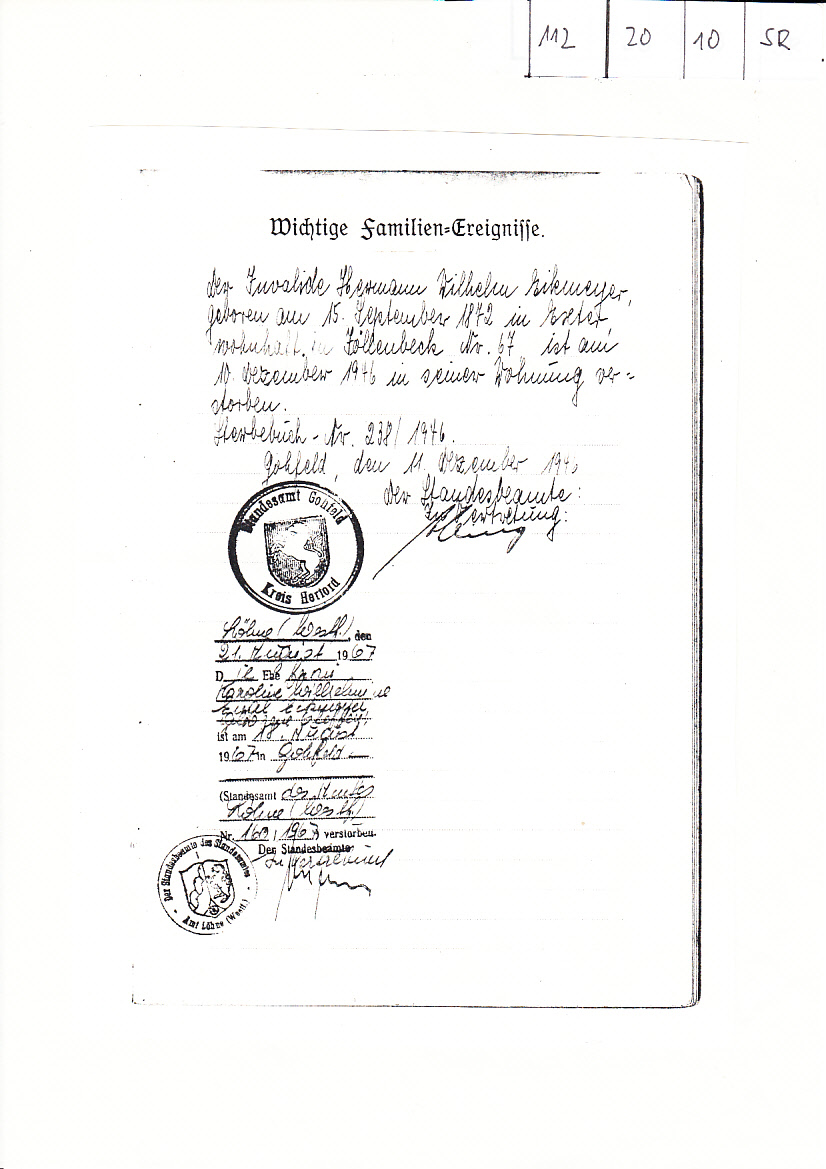 112 20 10 SR
Wichtige Familien-Ereignisse.
Der Invalide Hermann Wilhelm Eikmeyer,
geboren am 15. September 1872 in Exter,
wohnhaft in Föllenbeck Nr. 67 ist am
10. Dezember 1946 in seiner Wohnung ver-
storben.
Sterbebuch-Nr. 238/1946.
Gohfeld, den 11. Dezember 1946
Der Standesbeamte:
In Vertretung:
Standesamt Gohfeld
Kreis Herford
Löhne (Westf.), den
21. August 1967
D ie Ehe
Karoline Wilhelmine
ist am 18. August
1967 in Gohfeld
(Standesamt des Amtes
Löhne (Westf.)
Nr. 1967) verstorben.
Der Standesbeamte
In Vertretung
Der Standesbeamte des Standesamtes
Amt Löhne (Westf.)